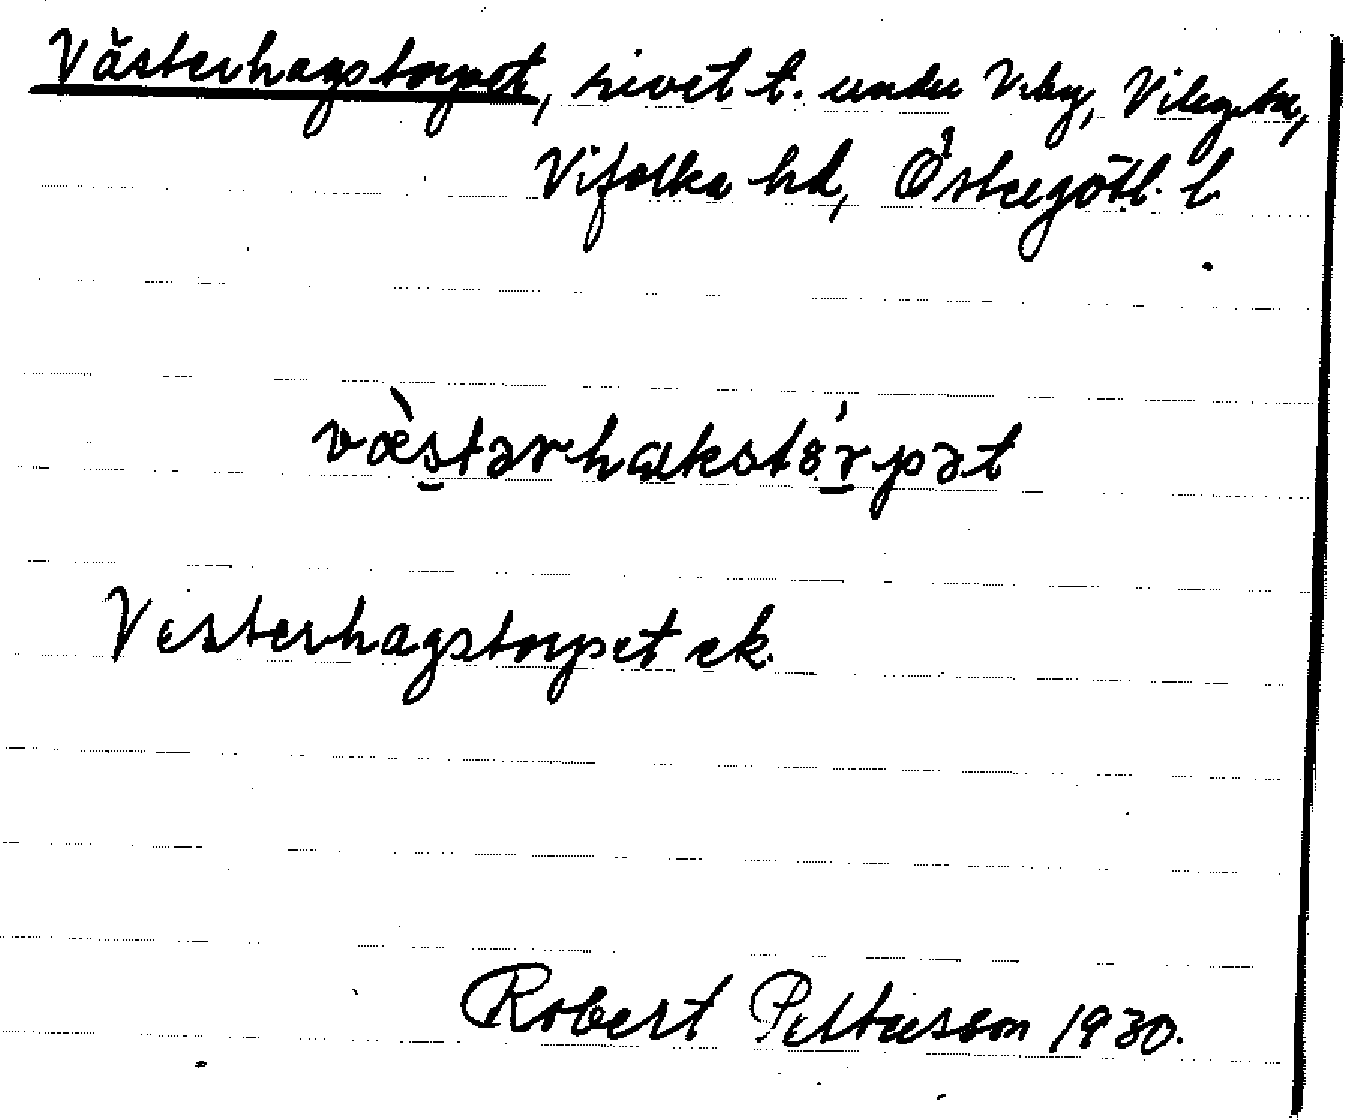 Västerhagstorpet, rivet t. under Viby, Viby sn,
Vifolka hd, Östergötl. l.
væ̀stərhakstɵ́rpət
Vesterhagstorpet ek.
Robert Pettersson 1930.